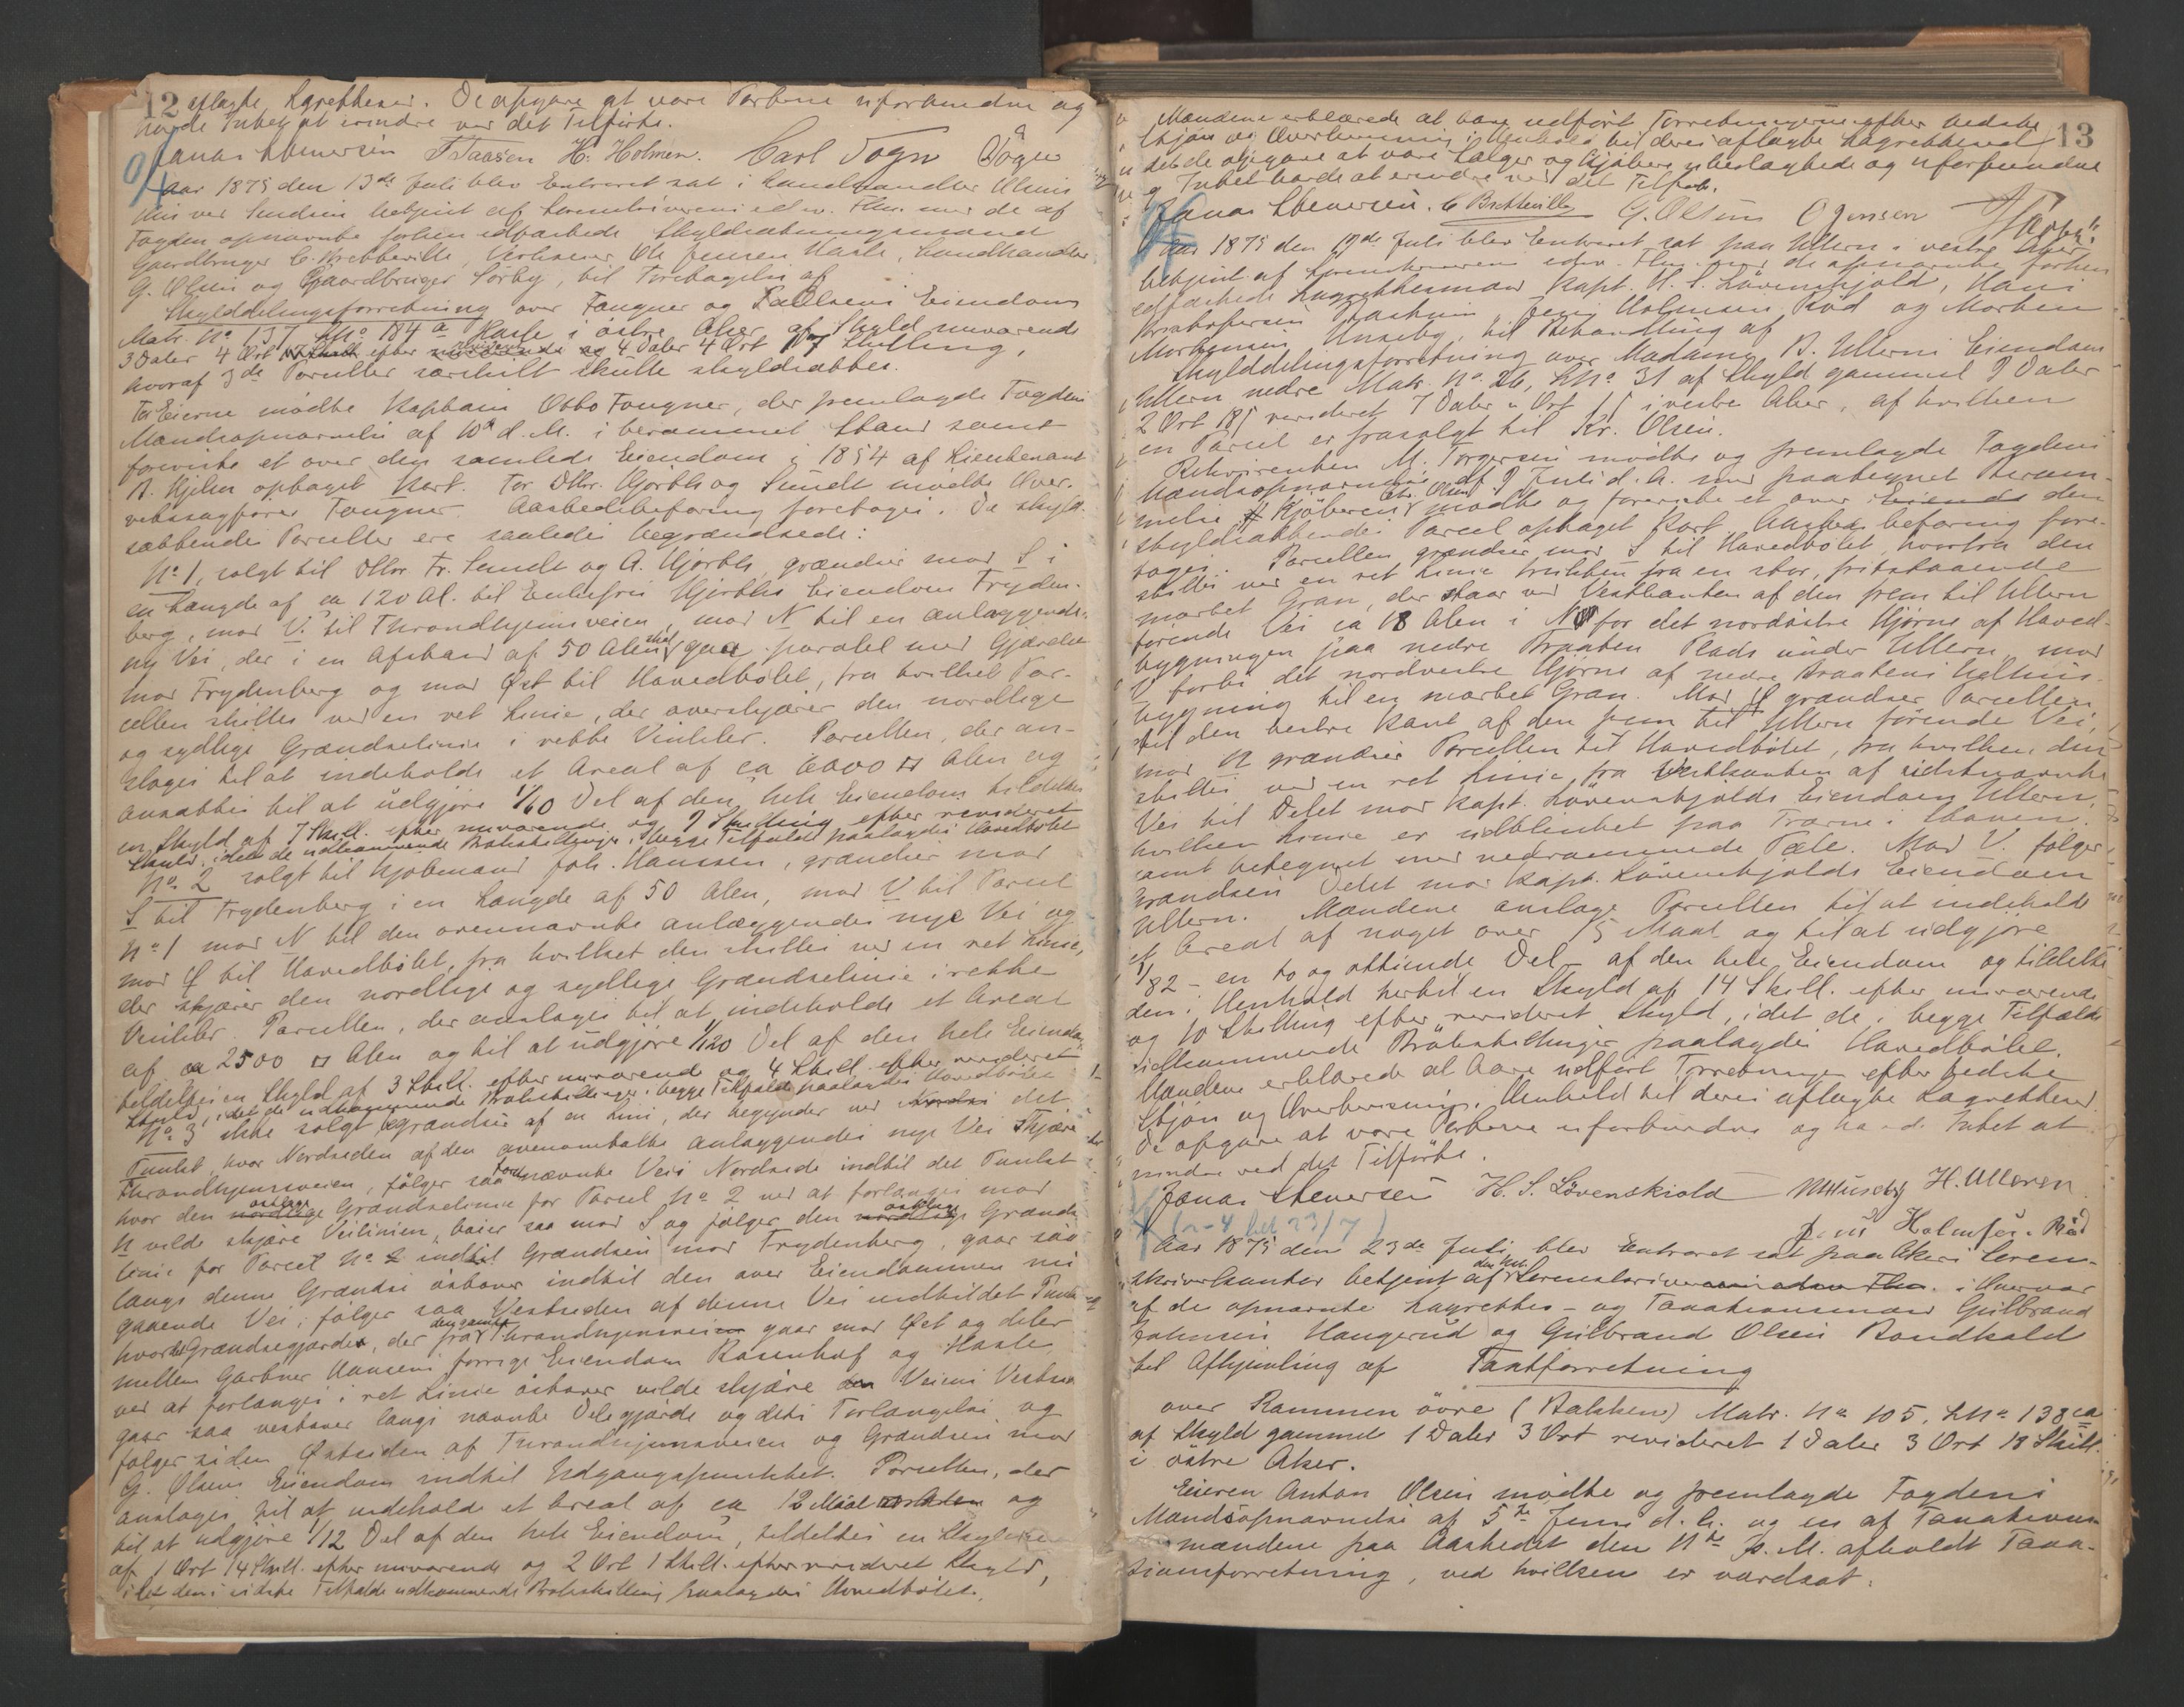 12 aflagte Lagrettesed. De opgave at være Parterne uforbundne og
havde Intet at erindre ved det Tilførte.
Jonas Stenersen T Taasen H. Holmen. Carl Fogn
Aar 1875 den 13de Juli blev Extraret sat i Landhandler Olsens
Hus ved Sinsen betjent af Sorenskriveren edsv. Flm. med de af
Fogden opnævnte forhen edfæstede Skyldsætningsmænd
Gaardbruger C. Bretteville, Ole Jensen Hasle, Landhandler
G. Olsen og Gaardbruger Sørby, til Foretagelse af
Skylddelingsforretning over Fougner og Eiendom
Matr. No 137 LNo 184 a Hasle i østre Aker af Skyld nuværende
3 Daler 4 Ort efter revideret 4 Daler 4 Ort 17 Skilling,
hvoraf 3de Parceller særskilt skulle skyldsættes.
For Eierne mødte Kaptain Otto Fougner, der fremlagde Fogdens
Mandsopnævnelse af 10de d. M. i berammet Stand samt
foreviste et over den samlede Eiendom i 1854 af Lieutenant
B. Hielm optaget Kart. For DHrr. Hjorth og Sundt mødte Over-
retssagfører Fougner. Aastedsbefaring foretoges. De skyld-
sættendes Parceller ere saaledes begrændsede:
No 1, solgt til DHrr. Fr. Sundt og A. Hjorth, grændser mod S i
en Længde af ca 120 Al. til Enkefru Hjorths Eiendom Fryden-
berg, mod V. til Throndhjemsveien, mod N til en anlæggendes
ny Vei, der i en Afstand af 50 Alen skal gaa paralel med Gjærdet
mod Frydenberg og mod Øst til Hovedbølet, fra hvilket Par-
cellen skilles ved en ret Linie, der overskjærer den nordlige
og sydlige Grændselinie i rette Vinkler. Parcellen, der an-
sloges til at indeholde et Areal af ca 6000 □ Alen og
ansattes til at udgjøre 1/60 Del af den hele Eiendom tildeltes
en Skyld af 7 Skill. efter nuværende og 9 Skilling efter revideret
Skyld, idet de udkommende Brøkskillinger i begge Tilfælde paalagdes Hovedbølet
No. 2 solgt til Kjøbmand Joh. Hanssen, grændser mod
S til Frydenberg i en Længde af 50 Alen, mod V til Parcel
No 1 mod N til den ovennævnte anlæggendes nye Vei og
mod Ø til Hovedbølet, fra hvilket den skilles ved en ret Linie,
der skjærer den nordlige og sydlige Grændselinie i rette
Vinkler. Parcellen, der ansloges til at indeholde et Areal
af ca 2500 □ Alen og til at udgjøre 1/120 Del af den hele Eiendom
tildeltes en Skyld af 3 Skill. efter nuværende og 4 Skill. efter revideret
Skyld, idet de udkommende Brøkskillinger i begge Tilfælde paalagdes Hovedbølet
No 3 ikke solgt begrændses af en Linie, der begynder ved det
Punkt, hvor Nordsiden af den ovenomtalte anlæggendes nye Vei skjærer
Throndhjemsveien, følger saa fornævnte Veis Nordside indtil det Punkt
hvor den østlige Grændselinie for Parcel No 2 ved at forlænges mod
N vilde skjære Veilinien, bøier saa mod S og følger den østlige Grændse-
linie for Parcel No 2 indtil Grændsen mod Frydenberg, gaar saa
langs denne Grændse østover indtil den over Eiendommen nu
gaaende Vei, følger saa Vestsiden af denne Vei indtil det Punkt
hvor Grændsegjærdet, der fra Throndhjemsveien gaar mod Øst og deler
mellem Gartner Hansens forrige Eiendom Rosenhof og Hasle,
ved at forlænges i ret Linie østover vilde skjære Veiens Vestside
gaar saa vestover langs nævnte Delegjærde og dets Forlængelse og
følger siden Østsiden af Throndhjemsveien og Grændsen mod
G. Olsens Eiendom indtil Udgangspunktet. Parcellen, der
ansloges til at indeholde et Areal af ca 12 Maal og
til at udgjøre 1/12 Del af den hele Eiendom, tildeltes en Skyld
af 1 Ort 14 Skill. efter nuværende og 2 Ort 1 Skill. efter revideret Skyld,
idet den i sidste Tilfælde udkommende Brøkskilling paalagdes Hovedbølet.
13
Mændene erklærede at have udført Forretningerne efter bedste
Skjøn og Overbevisning i Henhold til deres aflagte Lagrettesed
de opgave at være Sælger og Kjøbere ubeslægtede og uforbundne
og Intet havde at erindre ved det Tilførte.
Jonas Stenersen. C Bretteville G. Olsen O Jensen
Aar 1875 den 19de Juli blev Extraret sat paa Ullern i vestre Aker
betjent af Sorenskriveren edsv. Flm. med de opnævnte forhen
edfæstede Lagrettesmænd Kapt. H. S. Løvenskjold, Hans
Kristofersen Jens Holmsen Rød og Morten
Mortensen Huseby, til Behandling af
Skylddelingsforretning over Madame B. Ullerns Eiendom
Ullern nedre Matr. No. 26, LNo 31 af Skyld gammel 9 Daler
2 Ort 18 revideret 7 Daler " Ort i vestre Aker, af hvilken
en Parcel er frasolgt til Kr. Olsen.
Rekvirenten M. Torgersen mødte og fremlagde Fogdens
Mandsopnævnelse af 9 Juli d. A. med paategnet Beram-
melse Kjøberen Chr. Olsen mødte og foreviste et over den
skyldsættendes Parcel optaget Kart. Aastedsbefaring fore-
toges. Parcellen grændser mod S til Hovedbølet, hvorfra den
skilles ved en ret Linie trukken fra en stor, fritstaaende
mærket Gran, der staar ved Vestkanten af den frem til Ullern
førende Vei ca 18 Alen i N for det nordøstre Hjørne af Hoved-
bygningen paa nedre Braaten Plads under Ullern, mod
V forbi det nordvestre Hjørne af nedre Braatens Udhus-
bygning til en mærket Gran. Mod Ø grændser Parcellen
til den vestre Kant af den frem til Ullern førende Vei,
mod N grændser Parcellen til Hovedbølet, fra hvilken den
skilles ved en ret Linie, fra Vestkanten af sidstnævnte
Vei til Delet mod Kapt. Løvenskjolds Eiendom Ullern,
hvilken Linie er udblinket paa Træerne i Skoven
samt betegnet med nedrammede Pæle. Mod V. følger
Grændsen Delet mod Kapt. Løvenskjolds Eiendom
Ullern. Mændene ansloge Parcellen til at indeholde
et Areal af noget over 5 Maal og til at udgjøre
1/82 - en to og ottiende Del - af den hele Eiendom og tildelte
den i Henhold hertil en Skyld af 14 Skill. efter nuværende
og 10 Skilling efter revideret Skyld, idet de i begge Tilfælde
udkommende Brøkskillinger paalagdes Hovedbølet.
Mændene erklærede at have udført Forretningen efter bedste
Skjøn og Overbevisning i Henhold til deres aflagte Lagrettesed
De opgave at være Parterne uforbundne og havde Intet at
erindre ved det Tilførte.
Jonas Stenersen H. S. Løvenskiold MHuseby H. Ulleren
Jens Holmsen Rød
Aar 1875 den 23de Juli blev Extraret sat paa Akers Soren-
skriverkontor betjent af Sorenskriveren edsv. Flm. i Overvær
af de opnævnte Lagrettes- og Taxationsmænd Gulbrand
Johnsen Haugerud og Gulbrand Olsen Rondkold
til Afhjemling af Taxtforretning
over Rammen øvre (Bakken) Matr. No 105, LNo 138 ca
af Skyld gammel 1 Daler 3 Ort revideret 1 Daler 3 Ort 18 Skill.
i østre Aker.
Eieren Anton Olsen mødte og fremlagde Fogdens
Mandsopnævnelse af 5te Juni d. A. og en af Taxations-
mændene paa Aastedet den 11te s. M. afholdt Taxa-
tionsforretning, ved hvilken er værdsat: